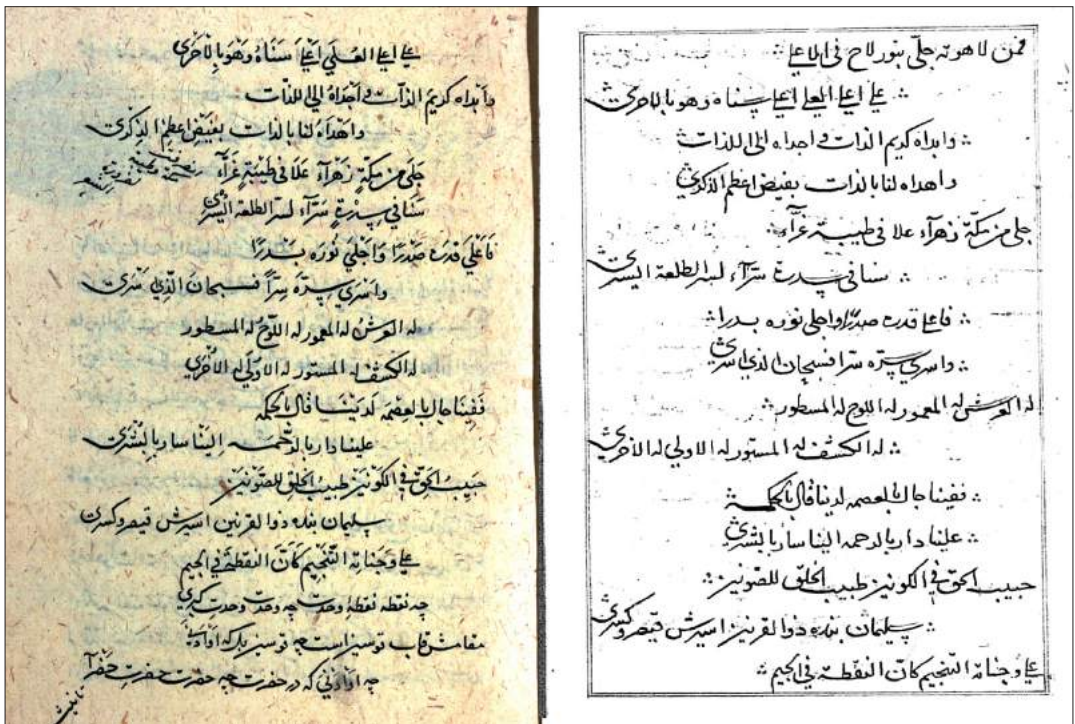 فمن لاهوته جلّی بنور لاح فی الاعلی
علی اعلی العلی اعلی سناه وهو بالاخری
وابداه کریم الذات واجداه الی اللذات
واهداه لنا بالذات بفیض اعظم الذکری
جلی من مکّة زهرآء علا فی طیبة غرّآء
سنا فی سدرة سرّآء لسر الطلعة الیسری
فاعلی قدره صدرًا واجلی نوره بدرا
واسری سرّه سرا فسبحان الذی اسری
له العرش له المعمور له اللوح له المسطور
له الکشف له المستور له الاولی له الاخری
ففینا جا بالعصمه لدینا قال بالحکمة
علینا دار بالرحمه الینا سار بالبشری
حبیب الحق فی الکونین طبیب الخلق للصونین
سلیمان بنده ذوالقرنین اسیرش قیصر وکسری
علی وجناته التنجیم کانّ النقطة فی الجیم
علی اعلی العُلی اَعلیَ سَنَاهُ وَهُوَ بِالاَخری
وَابداه کریم الذات واَجداهُ الی اللذات
واهداهُ لنا بالذات بفَیضِ اعظمِ الذِکری
جَلی من مکّةٍ زَهرآء عَلا فی طَیبَةٍ غَرّآء
سَنا فی سِدرةٍ سَرّآء لسر الطلعة الیسری
فَاعلی قَدرَه صَدرًا وَاَجلی نُورَه بَدرًا
واَسرَی سِرَّه سِراً فسبحانَ الَّذِی سَری
له العرشُ له المعمور له اللَّوحُ له المسطور
له الکشفُ له المستور له الاُولَی له الاُخری
فَفینا جا بالعِصمه لَدینَا قال بالحِکمه
علینا دار بالرَّحمَه اِلَینا سار بالبُشری
حَبِیبُ الحقِ فی الکَونَینِ طبیبُ الخلقِ للصَّونَینِ
سلیمان بنده ذوالقرنین اسیرش قیصر وکسری
علی وَجناته التّنجِیم کَانّ النقطَةَ فی الجیم
چه نقطه نقطهٔ وحدت چه وحدت وحدت کبری
مقامش قاب قوسین است چه قوسین بلکه او ادنی
چه او ادنی که در حضرت چه حضرت حضرت